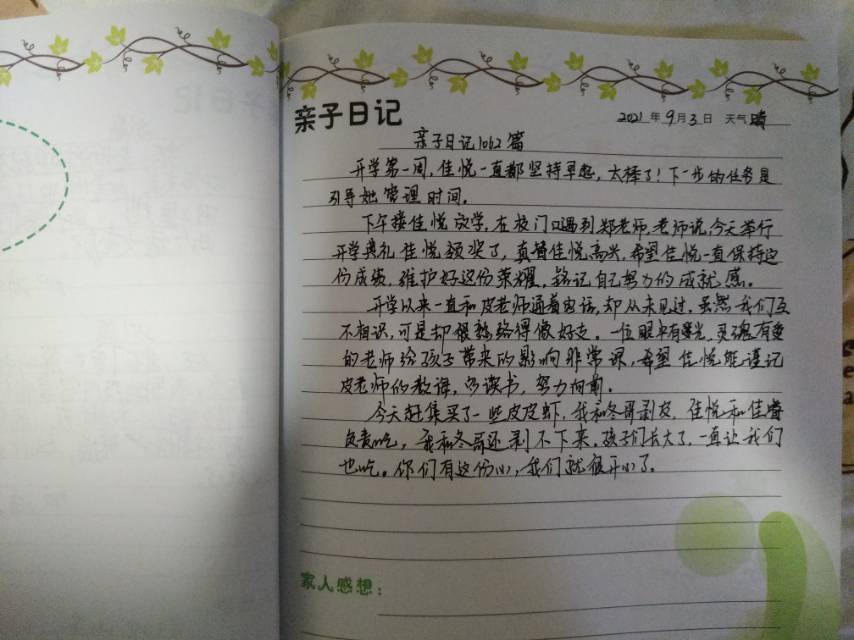 亲子日记
2021年9月3日 天气晴
亲子日记1062篇
开学第一周,佳悦一直都坚持早起,太棒了!下一步的任务是
引导她管理时间。
下午接佳悦放学,在校门口遇到郑老师,老师说今天举行
开学典礼佳悦领奖了,真替佳悦高兴,希望佳悦一直保持这
份成绩,维护好这份荣耀,铭记自己努力的成就感。
开学以来一直和皮老师通着电话,却从未见过,虽然我们互
不相识,可是却很熟络得像好友。一位眼中有光,灵魂有爱
的老师给孩子带来的影响非常深,希望佳悦能谨记
皮老师的教诲,多读书,努力向前。
今天赶集买了一些皮皮虾,我和冬哥剥皮,佳悦和佳
负责吃,我和冬哥还剥不下来,孩子们长大了,一直让我们
也吃。你们有这份心,我们就很开心了。
家人感想: